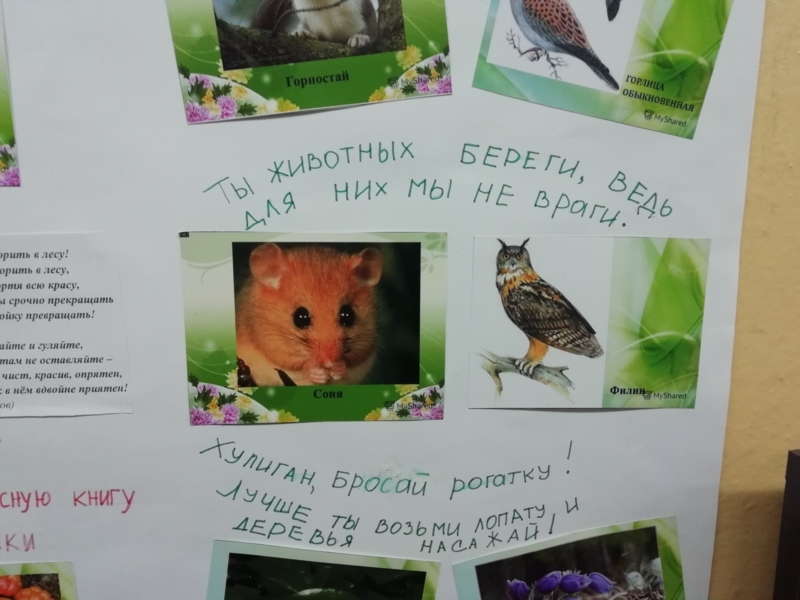 Горностай
MyShared
ГОРЛИЦА
ОБЫКНОВЕННАЯ
MyShared
ТЫ ЖИВОТНЫХ БЕРЕГИ, ВЕДЬ
ДЛЯ НИХ МЫ НЕ ВРАГИ.
орить в лесу!
орить в лесу,
ортя всю красу,
ы срочно прекращать
ойку превращать!
айте и гуляйте,
там не оставляйте –
чист, красив, опрятен,
в нём вдвойне приятен!
ов)
Соня
MyShared
Филин
MyShared
ХУЛИГАН, БРОСАЙ РОГАТКУ!
ЛУЧШЕ ТЫ ВОЗЬМИ ЛОПАТУ И
ДЕРЕВЬЯ НАСАЖАЙ!
СНУЮ КНИГУ
КИ